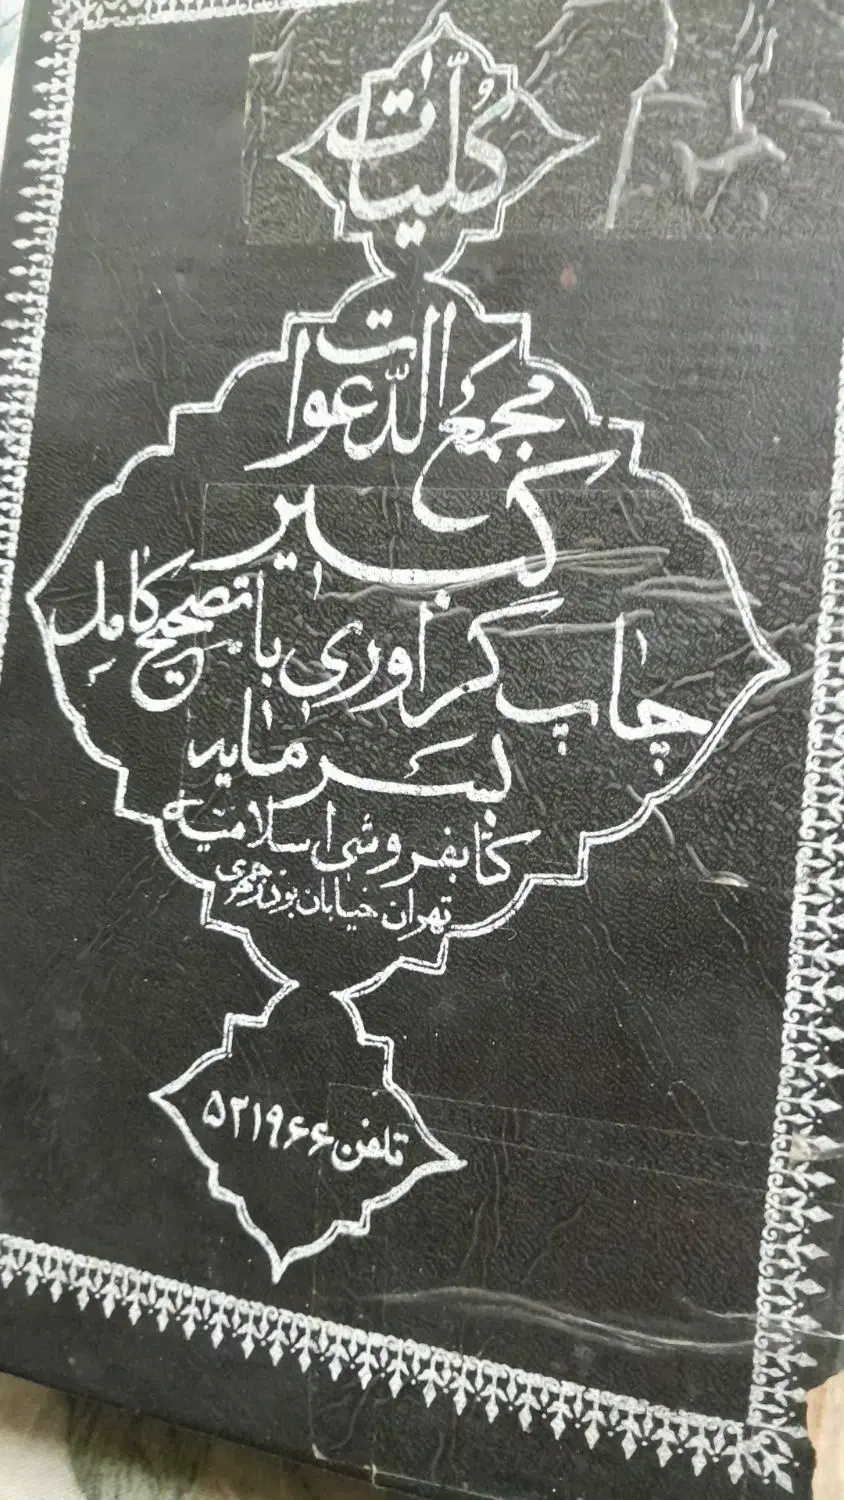 کُلّیات
مجمع الدّعوات
کبیر
چاپ گراوری با تصحیح کامل
بسرماید
کتابفروشی اسلامیه
تهران خیابان بوذرجمهری
تلفن ۵۲۱۹۶۶